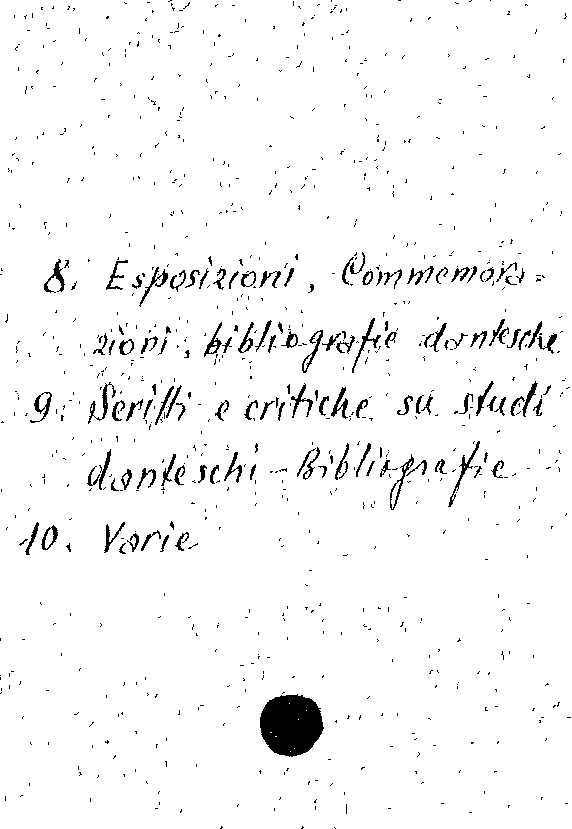 8. Esposizioni, Commemora=
zioni, bibliografie dantesche
9. Scritti e critiche su studi
danteschi - Bibliografie
10. Varie